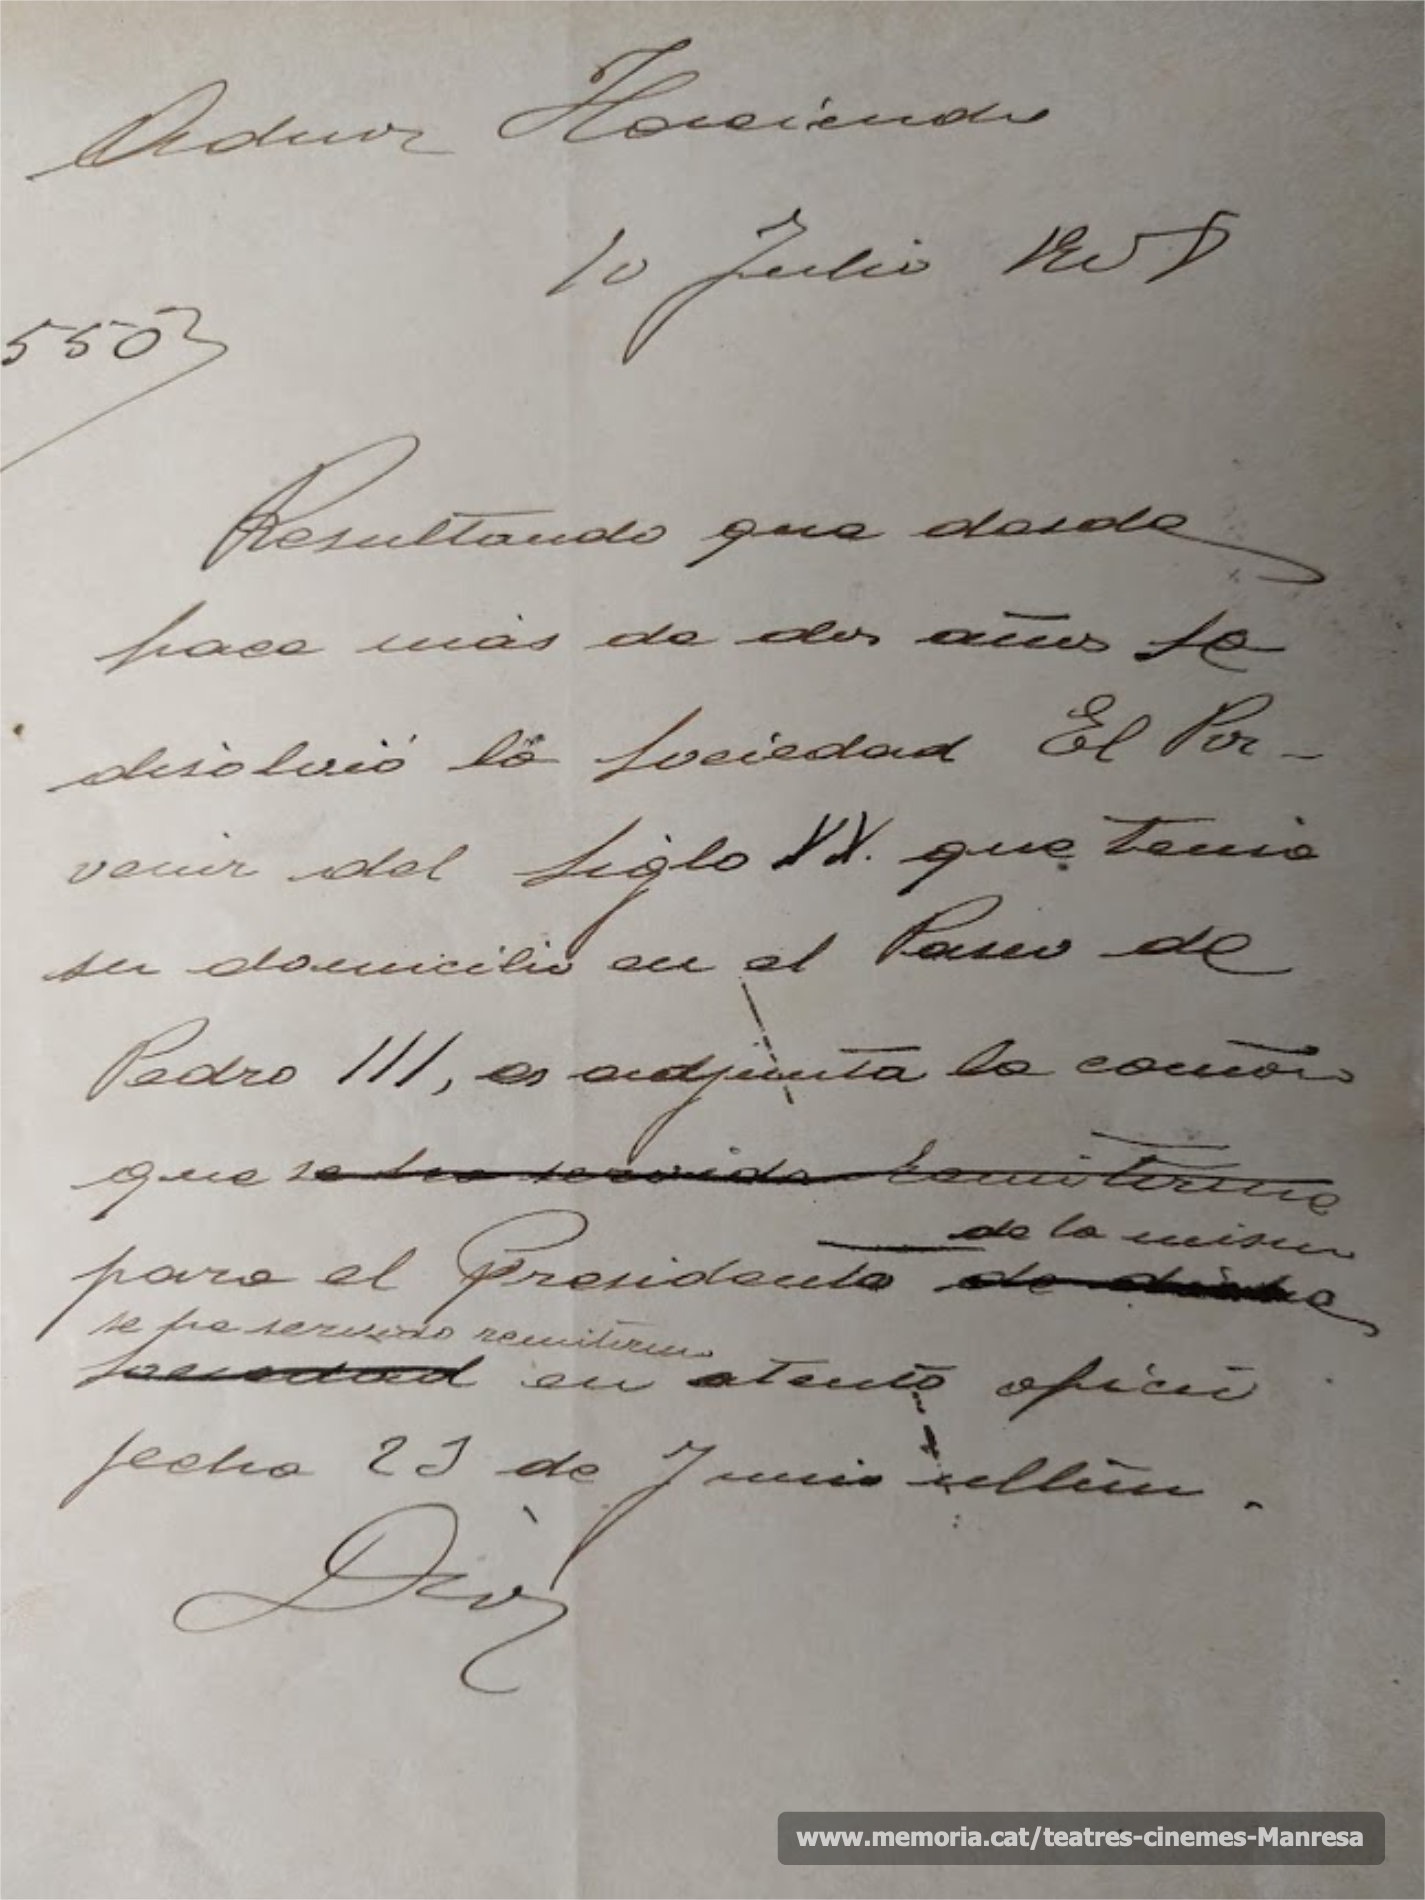 Admor Hacienda
10 Julio 1908
5503
Resultando que desde
hace más de dos años se
disolvió la sociedad El Por-
venir del siglo XX. que tenia
su domicilio en el Paseo de
Pedro III, os adjunta la comon
que se ha servido remitirme
de la misma
para el Presidente de dicha
se ha servido remitirme
sociedad en atento oficio
fecha 23 de Junio ultimo.
Dios
www.memoria.cat/teatres-cinemes-Manresa